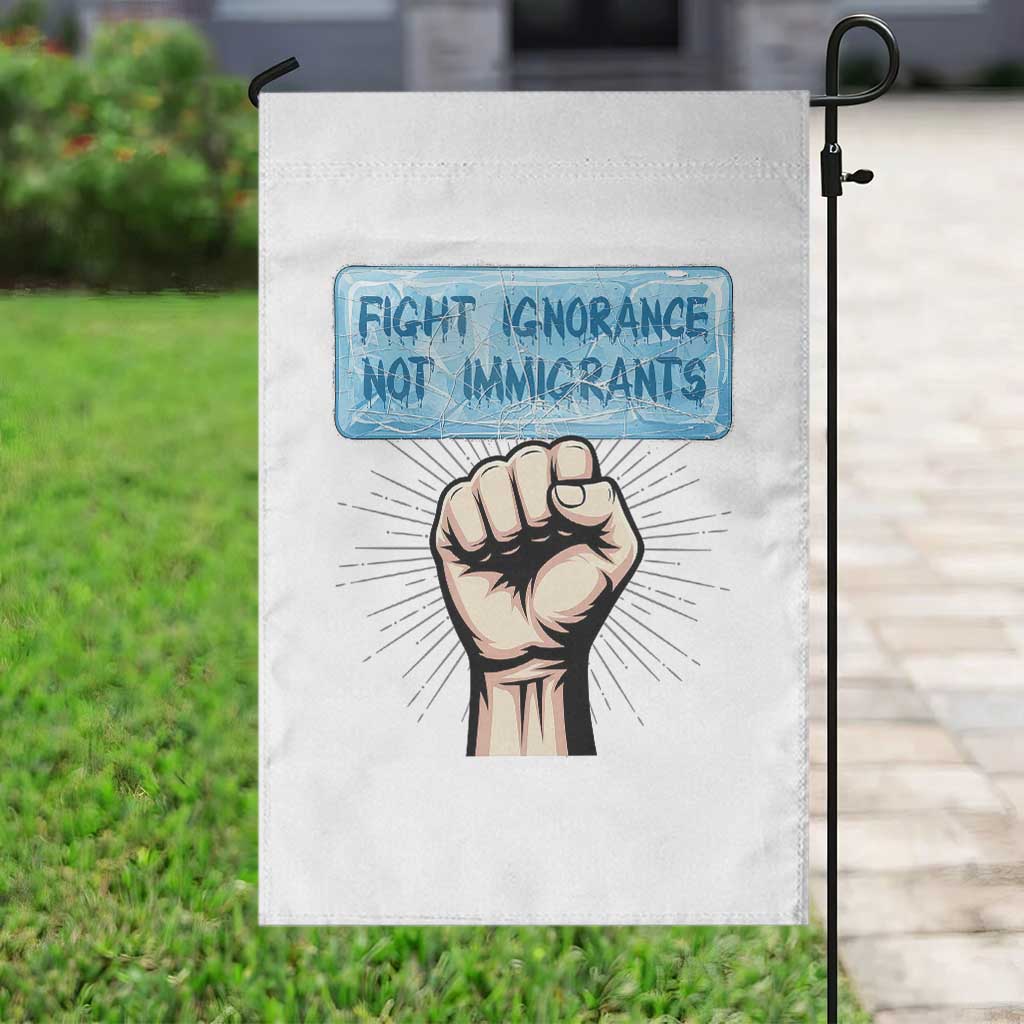 FIGHT IGNORANCE
NOT IMMIGRANTS